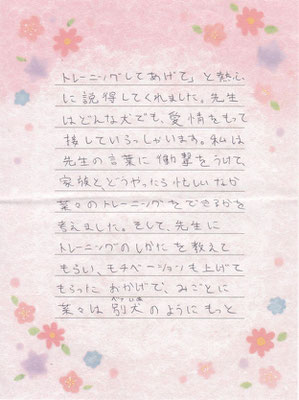 トレーニングしてあげて」と熱心
に説得してくれました。先生
はどんな犬でも、愛情をもって
接していらっしゃいます。私は
先生の言葉に働撃をうけて、
家族とどうやったら忙しいなか
菜々のトレーニングをできるかを
考えました。そして、先生に
トレーニングのしかたを教えて
もらい、モチベーションも上げて
もらった おかげで、みごとに
菜々は別犬のようにもっと